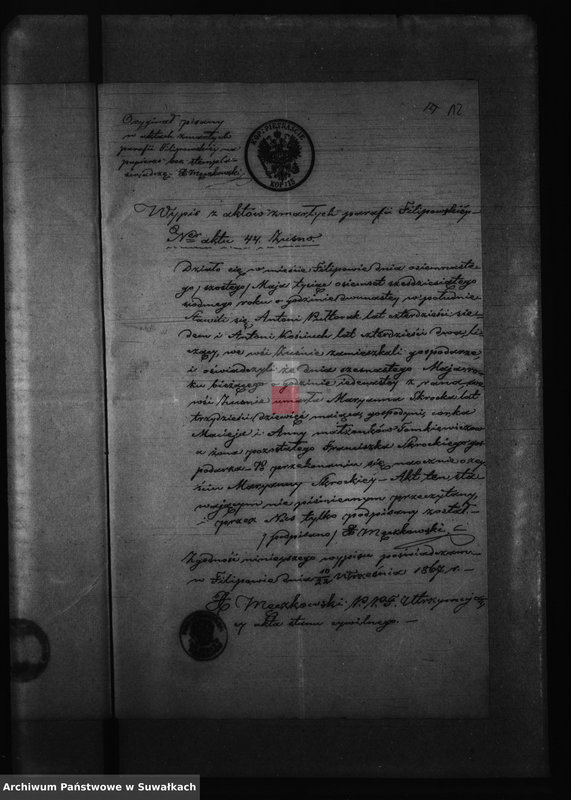 17 12
Oryginał pisany
w aktach zmarłych
parafii Filipowskiej na
papierze bez stempla
Męczkowski
KOP: PIETNAŚCIE
KOP: 15
Wypis z aktów zmarłych parafii Filipowskiéy
Nr aktu 44. Zusno.
Działo się w mieście Filipowie dnia osiemnaste-
go /szostego/ Maja tysiąc osiemset sześćdziesiątego
siodmego roku o godzinie dwunastey w południe
Stawili się Antoni Pułtorak lat czterdzieści sie-
dem i Antoni Kościuch lat czterdzieści dwa li-
czący, we wsi Zusnie zamieszkali gospodarze
i oświadczyli że dnia szesnastego Maja ro-
ku bieżącego godzinie iedenastey z rana we
wsi Zusnie umarła Maryanna Skrocka lat
trzydzieści dziewięć maiąca, gospodyni, córka
Macieja i Anny małżonków Tomkiewiczow
a żona pozostałego Franciszka Skrockiego gos-
podarza - Po przekonaniu się naocznie o zey-
ściu Maryanny Skrockiey - Akt ten sta-
wającym nie piśmiennym przeczytany,
i przez Nas tylko podpisany został -
/podpisano/ Męczkowski
Zgodność niniejszego wypisu poświadczam -
w Filipowie dnia 10/22 Września 1867 r. -
Męczkowski Utrzymujący
akta stanu cywilnego. -
Archiwum Państwowe w Suwałkach